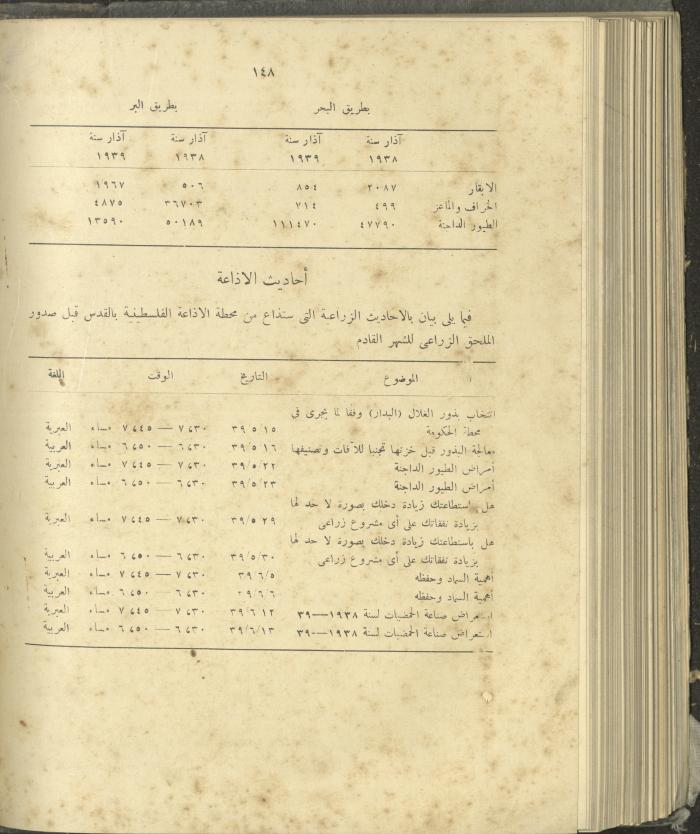 ١٤٨
بطريق البحر بطريق البر
آذار سنة آذار سنة آذار سنة آذار سنة
١٩٣٨ ١٩٣٩ ١٩٣٨ ١٩٣٩
الابقار ٢٠٨٧ ٨٥٤ ٥٠٦ ١٩٦٧
الخراف والماعز ٤٩٩ ٧١٤ ٣٦٧٠٣ ٤٨٧٥
الطيور الداجنة ٤٧٧٩٠ ١١١٤٧٠ ٥٠١٨٩ ١٣٥٩٠
أحاديث الاذاعة
فيما يلى بيان بالاحاديث الزراعية التى ستذاع من محطة الاذاعة الفلسطينية بالقدس قبل صدور
الملحق الزراعى للشهر القادم
الموضوع التاريخ الوقت اللغة
انتخاب بذور الغلال (البدار) وفقا لما يجرى فى
محطة الحكومة ٣٩/٥/١٥ ٧،٣٠ — ٧،٤٥ مساء العبرية
معالجة البذور قبل خزنها تجنبا للآفات وتصنيفها ٣٩/٥/١٦ ٦،٣٠ — ٦،٥٠ مساء العربية
أمراض الطيور الداجنة ٣٩/٥/٢٢ ٧،٣٠ — ٧،٤٥ مساء العبرية
أمراض الطيور الداجنة ٣٩/٥/٢٣ ٦،٣٠ — ٦،٥٠ مساء العربية
هل استطاعتك زيادة دخلك بصورة لا حد لها
بزيادة نفقاتك على أى مشروع زراعى ٣٩/٥/٢٩ ٧،٣٠ — ٧،٤٥ مساء العبرية
هل باستطاعتك زيادة دخلك بصورة لا حد لها
بزيادة نفقاتك على أى مشروع زراعى ٣٩/٥/٣٠ ٦،٣٠ — ٦،٥٠ مساء العربية
أهمية السماد وحفظه ٣٩/٦/٥ ٧،٣٠ — ٧،٤٥ مساء العبرية
أهمية السماد وحفظه ٣٩/٦/٦ ٦،٣٠ — ٦،٥٠ مساء العربية
استعراض صناعة الحمضيات لسنة ١٩٣٨—٣٩ ٣٩/٦/١٢ ٧،٣٠ — ٧،٤٥ مساء العبرية
استعراض صناعة الحمضيات لسنة ١٩٣٨—٣٩ ٣٩/٦/١٣ ٦،٣٠ — ٦،٥٠ مساء العربية